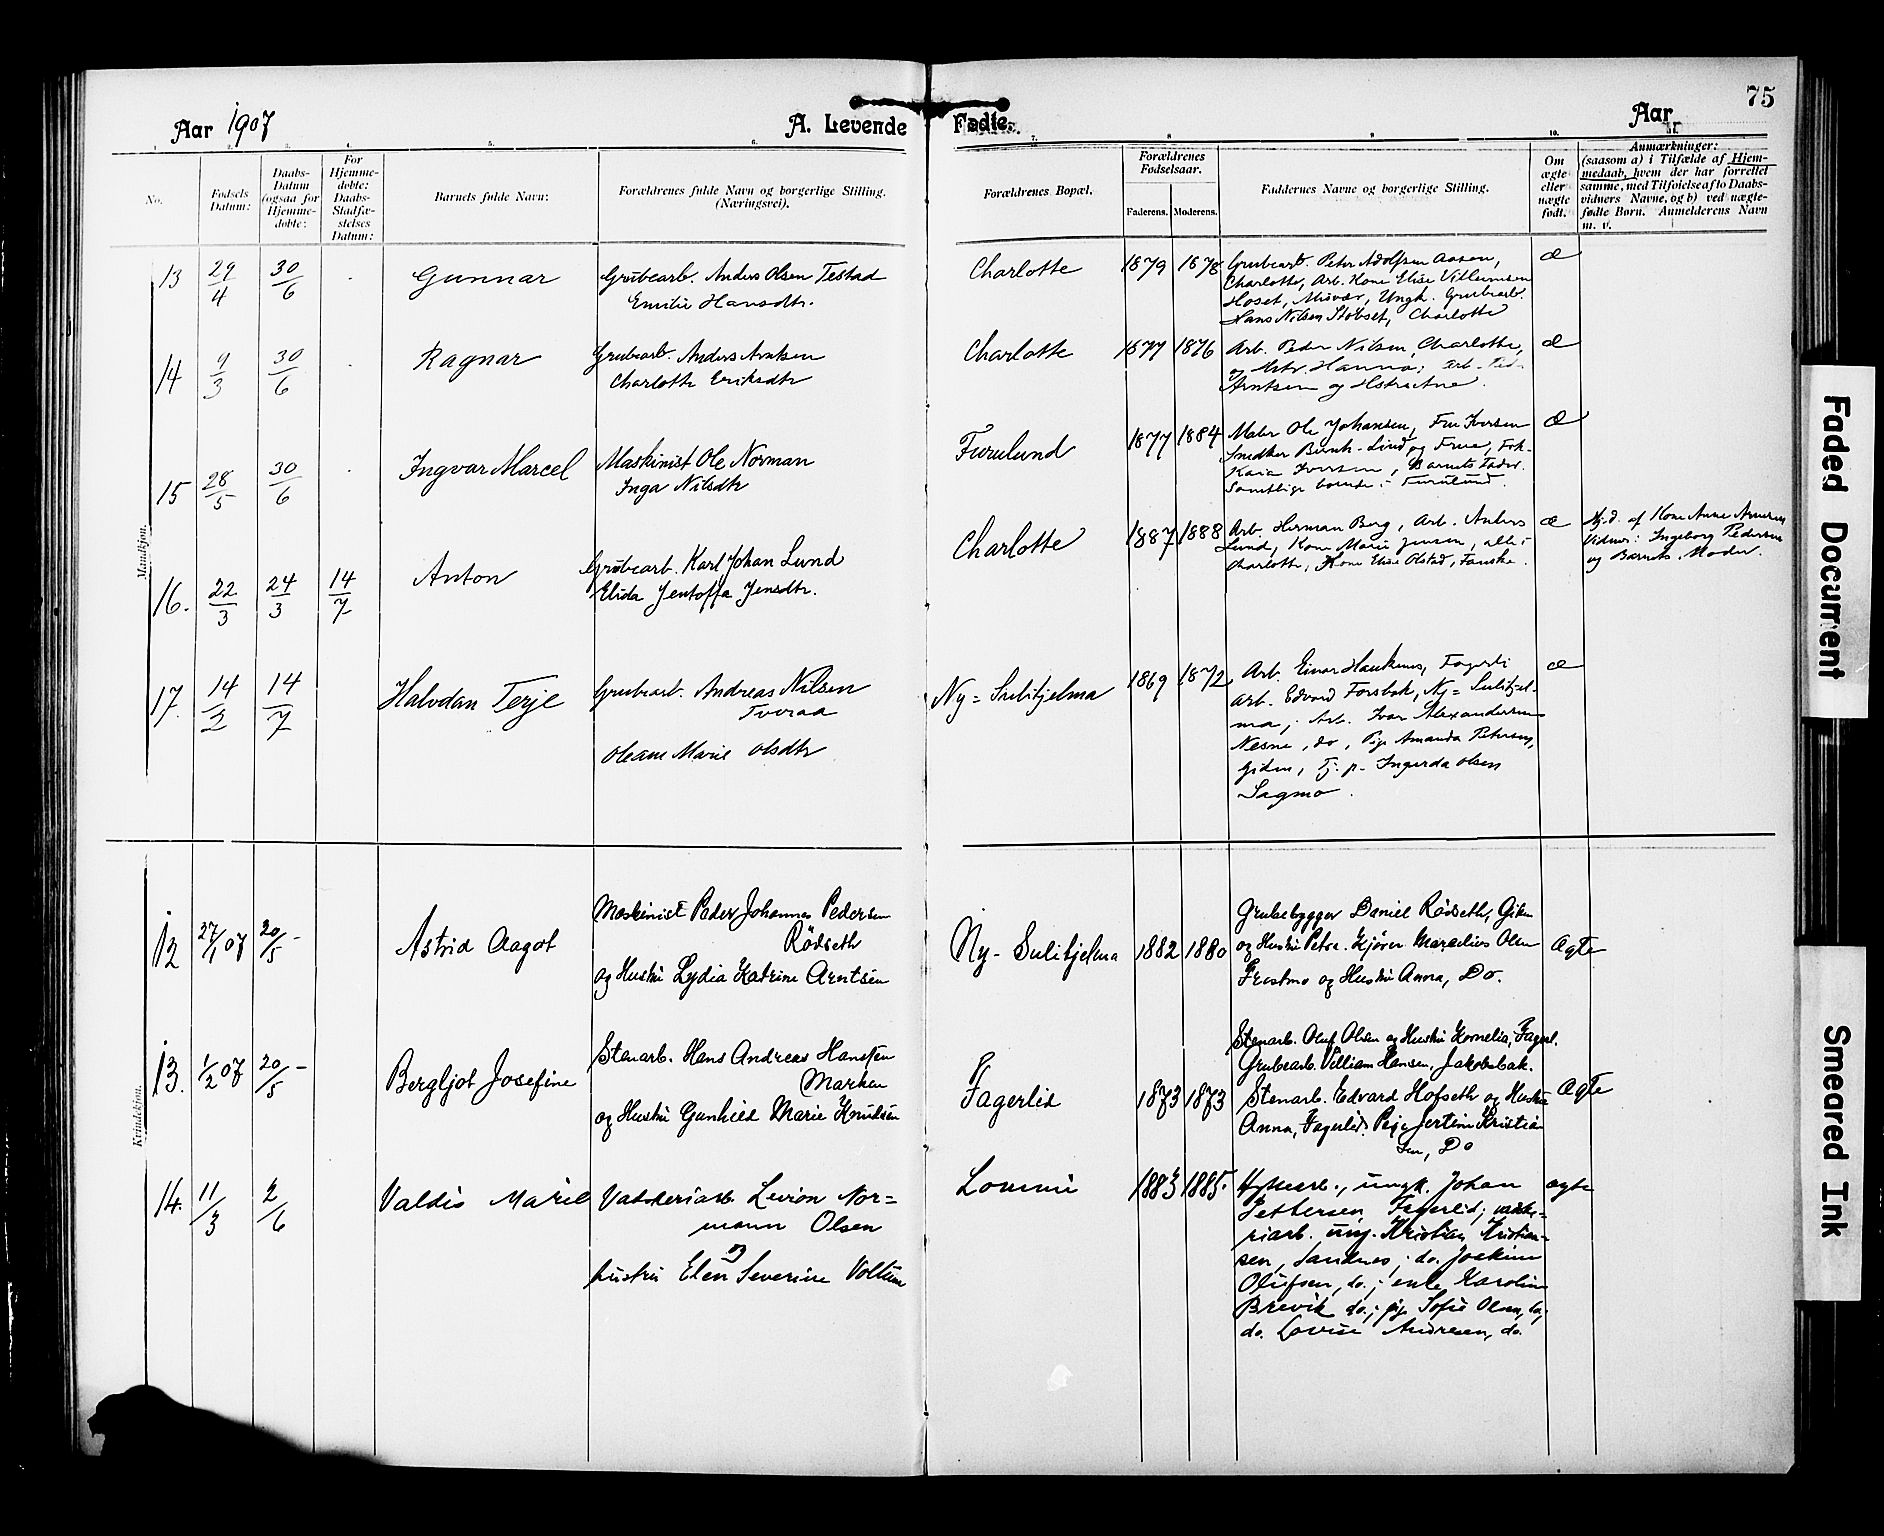 75
Aar 1907
A. Levende
Fødte.
Aar
No.
Fødsels Datum:
Daabs-Datum (ogsaa for Hjemme-døbte:
For Hjemme-døbte: Daabs-Stadfæ-stelses Datum:
Barnets fulde Navn:
Forældrenes fulde Navn og borgerlige Stilling.
(Næringsvei).
Forældrenes Bopæl.
Forældrenes Fødselsaar.
Faderens.
Moderens.
Faddernes Navne og borgerlige Stilling.
Om ægte eller uægte født.
Anmærkninger:
(saasom a) i Tilfælde af Hjem-
medaab, hvem der har forrettet
samme, med Tilføielse af to Daabs-
vidners Navne, og b) ved uægte-
fødte Børn. Anmelderens Navn
m. v.
Mandkjøn.
13 29/4 30/6 Gunnar
Grubearb. Anders Olsen Testad
Emilie Hansdtr.
Charlotte 1879 1878
Grubearb. Peter Adolfsen Aasen,
Charlotte, Arb. Kone Elise Villumsen
Hoset, Misvær, Ungk. Grubearb.
Hans Nilsen Stobset, Charlotte
æ
14 9/3 30/6 Ragnar
Grubearb. Anders Arntsen
Charlotte Eriksdtr
Charlotte 1877 1876
Arb. Peder Nilsen, Charlotte,
og Hstr. Hanna; Arb.
Arntsen og Hstr
æ
15 28/5 30/6 Ingvar Marcel
Maskinist Ole Norman
Inga Nilsdtr
Furulund 1877 1884
Maler Ole Johansen, Fru Iversen
Snedker Bernh. Lind og Frue, Frk.
Kaia Iversen, Barnets Fader.
Samtlige boende: Furulund.
æ
16. 22/3 24/3 14/7 Anton
Grubearb. Karl Johan Lund
Elida Jentoffa Jensdtr.
Charlotte 1887 1888
Arb. Herman Berg, Arb. Anders
Lund, Kone Marie Jensen, alle:
Charlotte, Kone Elise Olstad, Fauske.
æ
Hj.d. af Kone Anne Arnesen
Vidner: Ingeborg Pedersen
og Barnets Moder.
17. 14/2 14/7 Halvdan Terje
Grubearb. Andreas Nilsen
Tveraa
Oleane Marie Olsdtr
Ny=Sulitjelma 1869 1872
Arb. Einar Haukenes, Fagerli
Arb. Edvard Forsbak, Ny=Sulitjel-
ma; Arb. Ivar Alexandersen
Nesne, do, Pige Amanda Petersen,
Giken, Tj. p. Ingerda Olsen
Sagmo.
æ
Kvindekjøn.
12 27/1 07 20/5 - Astrid Aagot
Maskinist Peder Johannes Pedersen
Rødseth
og Hustru Lydia Katrine Arntsen
Ny-Sulitjelma 1882 1880
Grubebygger Daniel Rødseth, Giken
og Hustru Petra. Kjører Marselius Olsen
Frostmo og Hustru Anna, Do.
Ægte
13. 1/2 07 20/5 - Bergljot Josefine
Stenarb. Hans Andreas Hanssen
Marken
og Hustru Gunhild Marie Knudsen
Fagerlid 1873 1873
Stenarb. Oluf Olsen og Hustru Kornelia, Fagerl.
Grubearb. Villiam Hansen, Jakobsbak.
Stenarb. Edvard Hofseth og Hustru
Anna, Fagerlid. Pige Jertine Kristian
sen, Do
Ægte
14. 11/3 2/6 Valdis Marie
Vaskeriarb Levion Nor=
mann Olsen
og
hustru Elen Severine Voltum
Lommi 1883 1885.
Hyttearb., ungk. Johan
Pettersen Fagerlid; vaske-
riarb. ung. Kristian Kristian-
sen, Sandnes; do. Joakim
Olufsen, do.; enke Karoline
Brevik do.; pige Sofie Olsen, do;
do. Lovise Andresen, do.
ægte
Faded Document
Smeared Ink